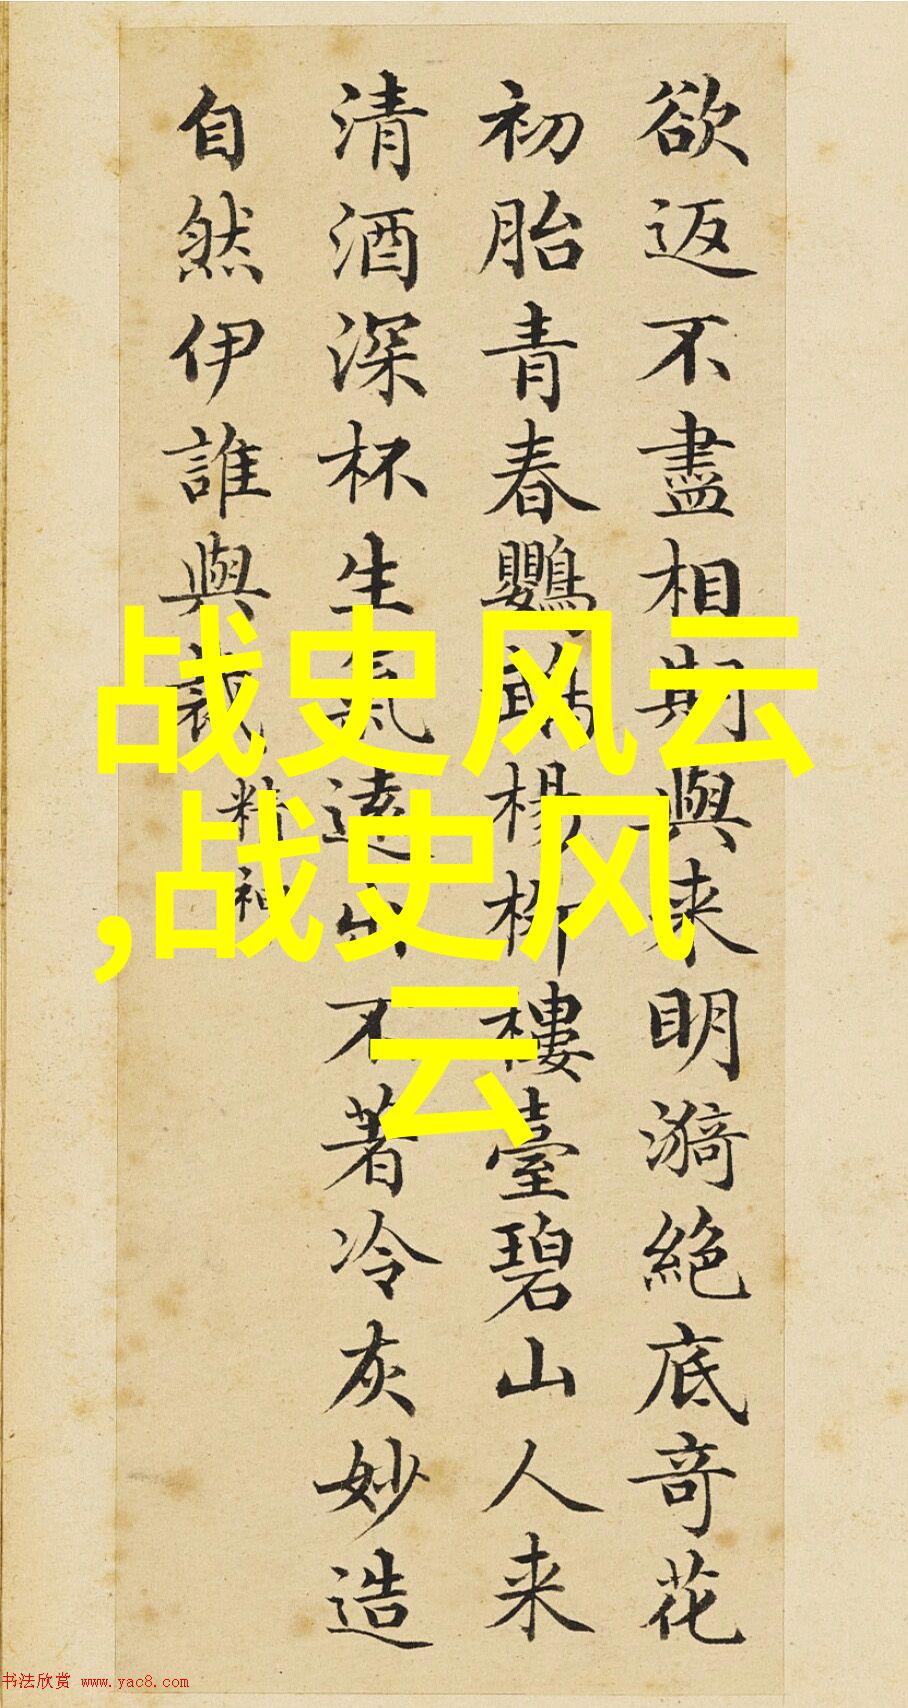 欲返不盡相期與来明漪絶底奇花
初胎青春鸚鵡楊柳樓臺碧山人来
清酒深杯生氣遠出不著冷灰妙造
自然伊誰與裁
精神
战史风云
,战史风
云
书法欣赏 www.yac8.com